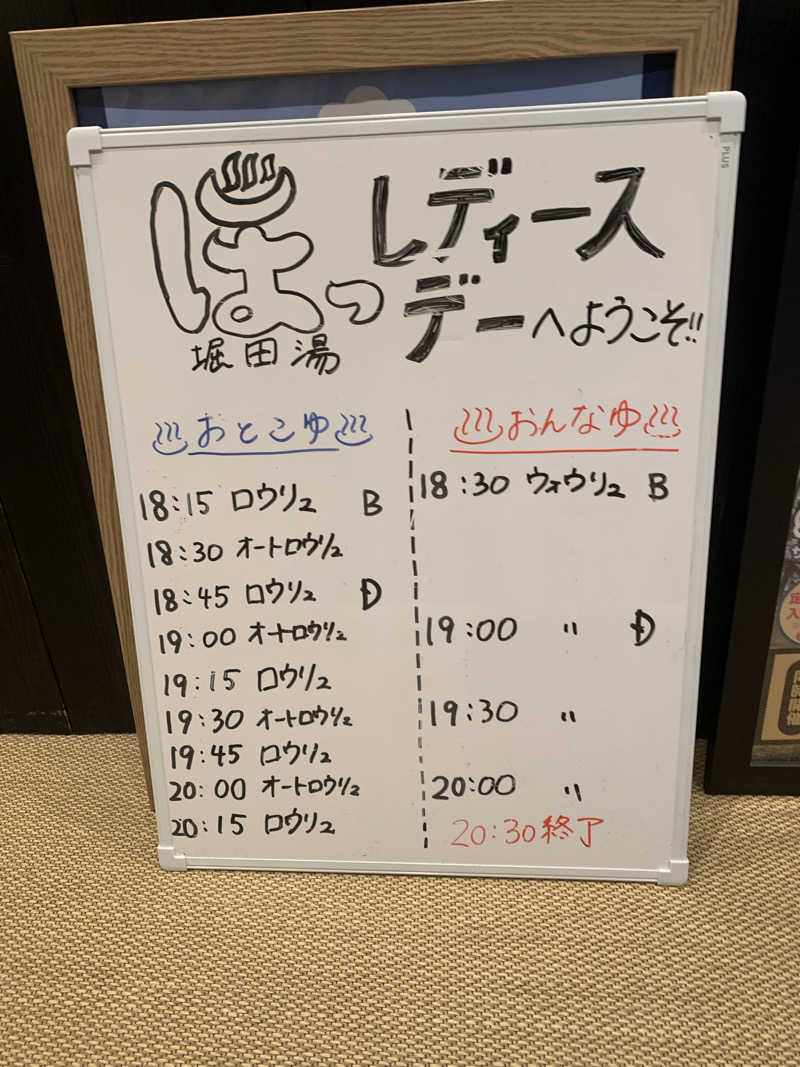 ほっ レディース
デーへようこそ!!
堀田湯
おとこゆ
18:15 ロウリュ B
18:30 オートロウリュ
18:45 ロウリュ D
19:00 オートロウリュ
19:15 ロウリュ
19:30 オートロウリュ
19:45 ロウリュ
20:00 オートロウリュ
20:15 ロウリュ
おんなゆ
18:30 ウォウリュ B
19:00 〃 D
19:30 〃
20:00 〃
20:30終了
PLUS